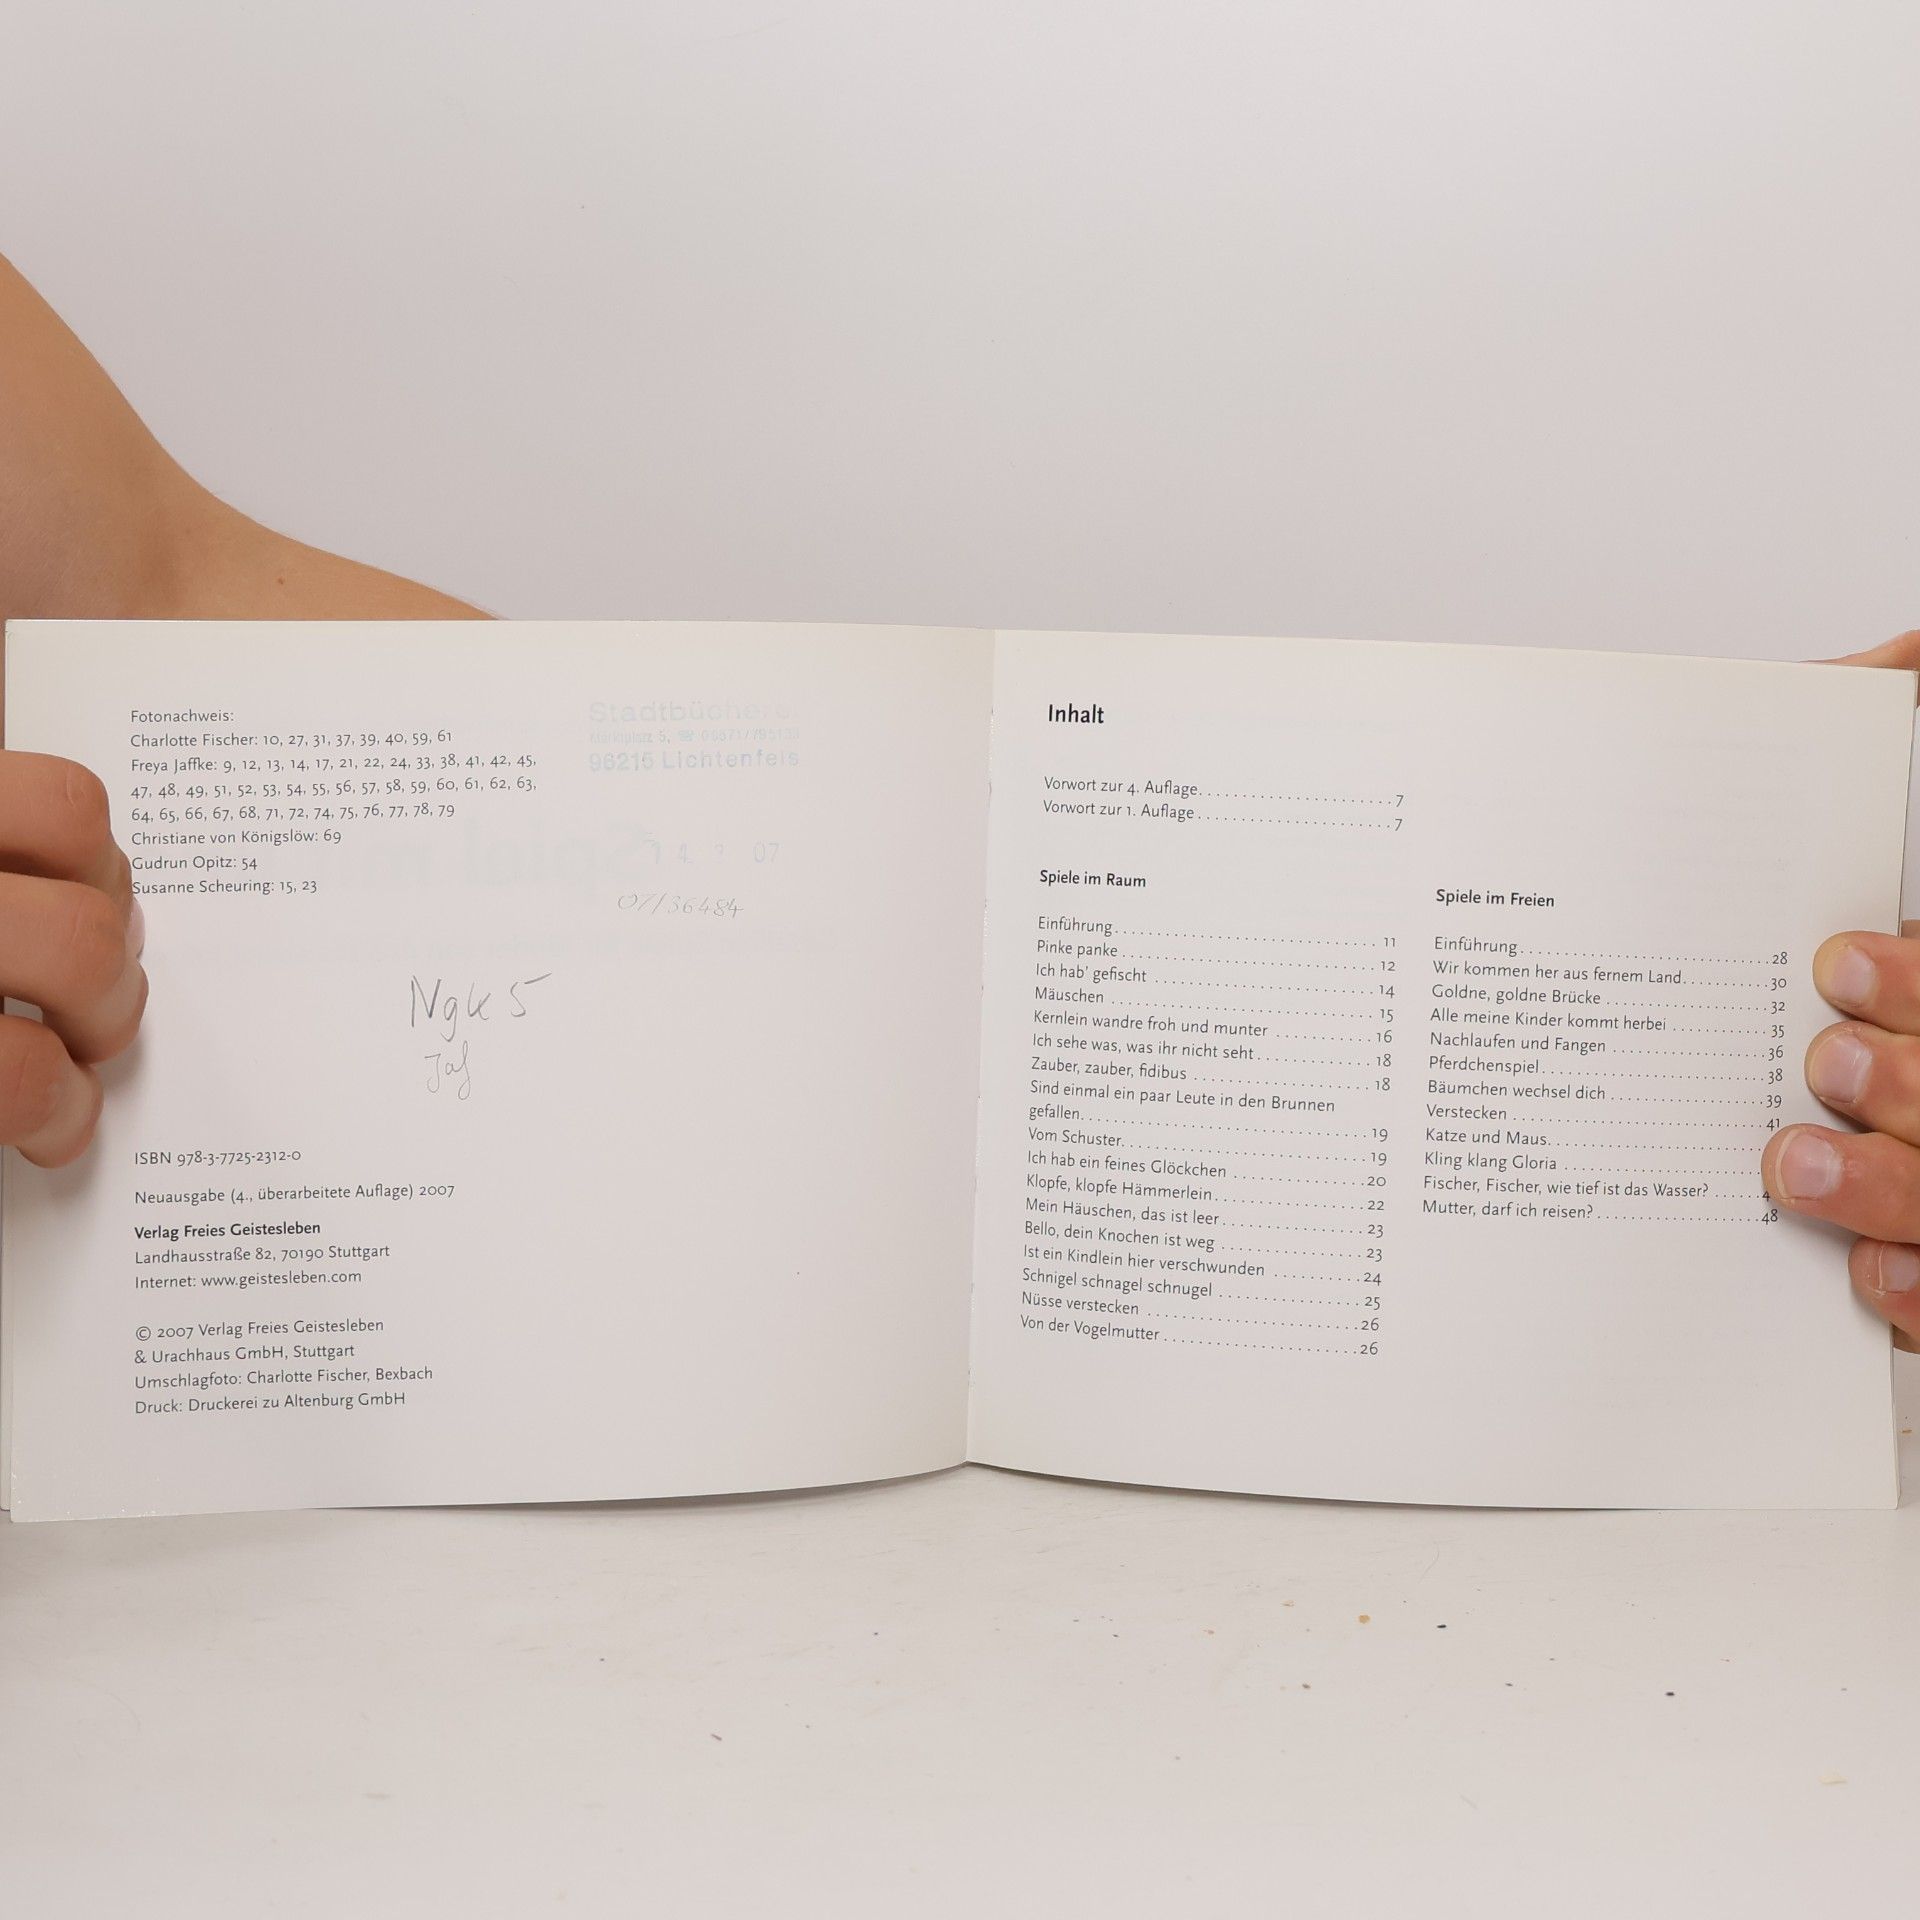 Fotonachweis:
Charlotte Fischer: 10, 27, 31, 37, 39, 40, 59, 61
Freya Jaffke: 9, 12, 13, 14, 17, 21, 22, 24, 33, 38, 41, 42, 45,
47, 48, 49, 51, 52, 53, 54, 55, 56, 57, 58, 59, 60, 61, 62, 63,
64, 65, 66, 67, 68, 71, 72, 74, 75, 76, 77, 78, 79
Christiane von Königslöw: 69
Gudrun Opitz: 54
Susanne Scheuring: 15, 23
Stadtbücherei
Marktplatz 5,
96215 Lichtenfels
07
07/36484
Ngk 5
Jaf
ISBN 978-3-7725-2312-0
Neuausgabe (4., überarbeitete Auflage) 2007
Verlag Freies Geistesleben
Landhausstraße 82, 70190 Stuttgart
Internet: www.geistesleben.com
© 2007 Verlag Freies Geistesleben
& Urachhaus GmbH, Stuttgart
Umschlagfoto: Charlotte Fischer, Bexbach
Druck: Druckerei zu Altenburg GmbH
Inhalt
Vorwort zur 4. Auflage. . . . . . . . . . . . . . . . . . . . . . . 7
Vorwort zur 1. Auflage . . . . . . . . . . . . . . . . . . . . . . . 7
Spiele im Raum
Einführung. . . . . . . . . . . . . . . . . . . . . . . . . . . . . . 11
Pinke panke . . . . . . . . . . . . . . . . . . . . . . . . . . . . . 12
Ich hab' gefischt . . . . . . . . . . . . . . . . . . . . . . . . . . 14
Mäuschen . . . . . . . . . . . . . . . . . . . . . . . . . . . . . . 15
Kernlein wandre froh und munter . . . . . . . . . . . . 16
Ich sehe was, was ihr nicht seht . . . . . . . . . . . . . . 18
Zauber, zauber, fidibus . . . . . . . . . . . . . . . . . . . . . 18
Sind einmal ein paar Leute in den Brunnen
gefallen. . . . . . . . . . . . . . . . . . . . . . . . . . . . . . . . . 19
Vom Schuster. . . . . . . . . . . . . . . . . . . . . . . . . . . . 19
Ich hab ein feines Glöckchen . . . . . . . . . . . . . . . . 20
Klopfe, klopfe Hämmerlein . . . . . . . . . . . . . . . . . . 22
Mein Häuschen, das ist leer . . . . . . . . . . . . . . . . . 23
Bello, dein Knochen ist weg . . . . . . . . . . . . . . . . . 23
Ist ein Kindlein hier verschwunden . . . . . . . . . . 24
Schnigel schnagel schnugel . . . . . . . . . . . . . . . . . 25
Nüsse verstecken . . . . . . . . . . . . . . . . . . . . . . . . . 26
Von der Vogelmutter . . . . . . . . . . . . . . . . . . . . . . 26
Spiele im Freien
Einführung . . . . . . . . . . . . . . . . . . . . . . . . . . . . . 28
Wir kommen her aus fernem Land. . . . . . . . . . 30
Goldne, goldne Brücke . . . . . . . . . . . . . . . . . . . 32
Alle meine Kinder kommt herbei . . . . . . . . . . . 35
Nachlaufen und Fangen . . . . . . . . . . . . . . . . . . 36
Pferdchenspiel . . . . . . . . . . . . . . . . . . . . . . . . . . 38
Bäumchen wechsel dich . . . . . . . . . . . . . . . . . . 39
Verstecken . . . . . . . . . . . . . . . . . . . . . . . . . . . . . 41
Katze und Maus. . . . . . . . . . . . . . . . . . . . . . . . .
Kling klang Gloria . . . . . . . . . . . . . . . . . . . . . . .
Fischer, Fischer, wie tief ist das Wasser? . . . . . .
Mutter, darf ich reisen? . . . . . . . . . . . . . . . . . . . 48